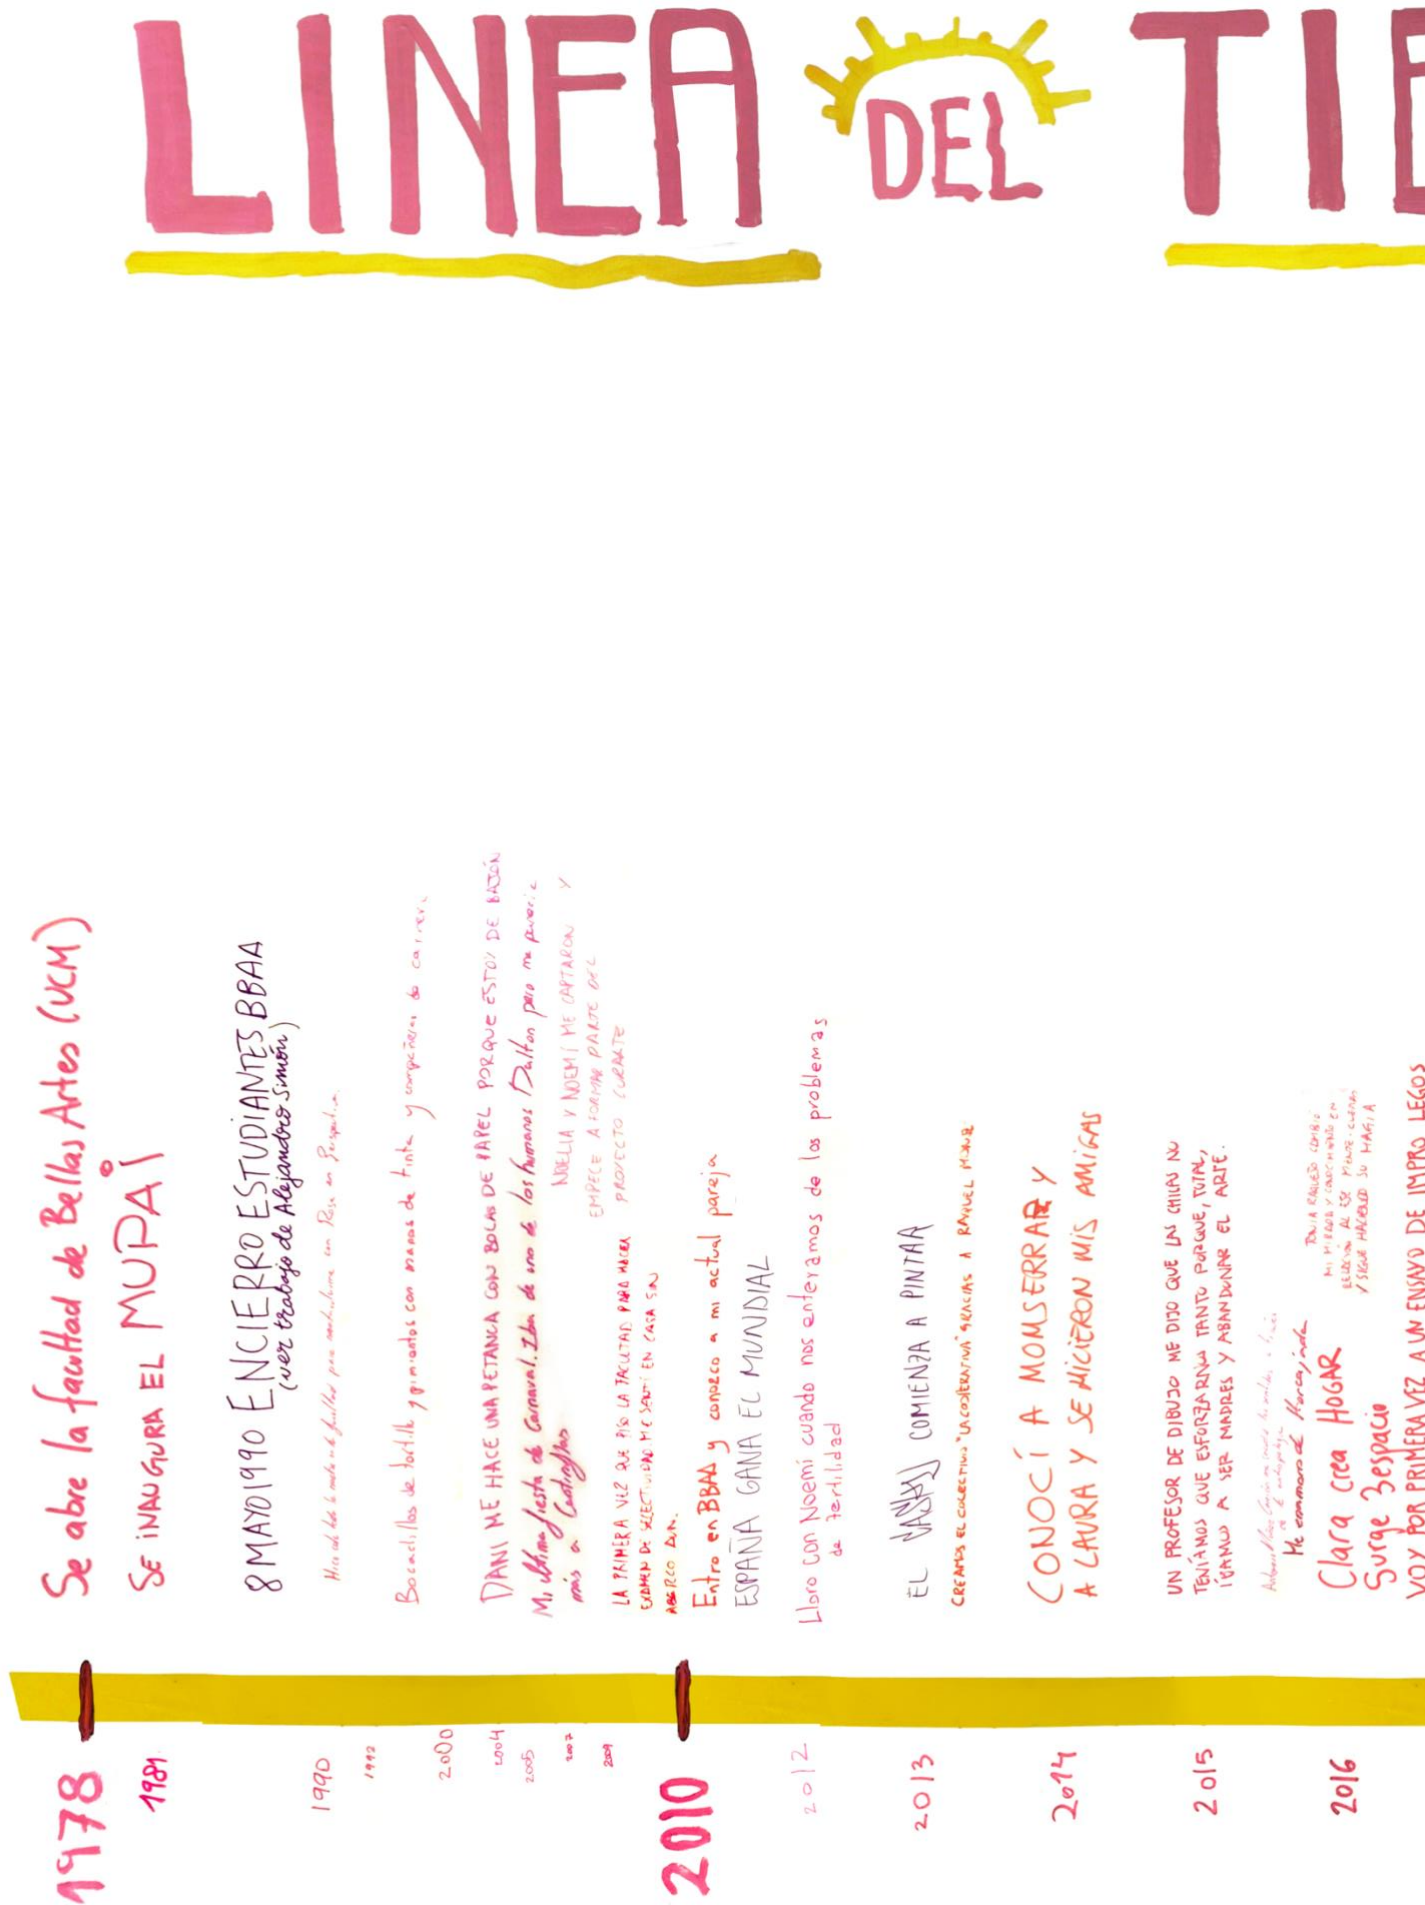 LINEA DEL TIE
Se abre la facultad de Bellas Artes (UCM)
SE INAUGURA EL MUPAI
8 MAYO 1990 ENCIERRO ESTUDIANTES BBAA
(ver trabajo de Alejandro Simón)
con Rosa en Perspectiva
Bocadillos de tortilla y pimientos con manos de tinta y compañeras de carrera
DANI ME HACE UNA PETANCA CON BOLAS DE PAPEL PORQUE ESTOY DE BAJÓN
Mi última fiesta de Carnaval. Iba de uno de los hermanos Dalton pero me parecía
más a Cantinflas
NOELIA Y NOEMÍ ME CAPTARON Y
EMPECE A FORMAR PARTE DEL
PROYECTO CURARTE
LA PRIMERA VEZ QUE PISO LA FACULTAD PARA HACER
EXAMEN DE SELECTIVIDAD ME SENTÍ EN CASA SIN
Entro en BBAA y conozco a mi actual pareja
ESPAÑA GANA EL MUNDIAL
Lloro con Noemí cuando nos enteramos de los problemas
de fertilidad
EL COMIENZA A PINTAR
CREAMOS EL COLECTIVO "LA COOPERATIVA" GRACIAS A RAQUEL MONJE
CONOCÍ A MOMSERRAT Y
A LAURA Y SE HICIERON MIS AMIGAS
UN PROFESOR DE DIBUJO ME DIJO QUE LAS CHICAS NO
TENÍAMOS QUE ESFORZARNOS TANTO PORQUE, TOTAL,
ÍBAMOS A SER MADRES Y ABANDONAR EL ARTE.
Me enamoro de
Clara crea HOGAR
Surge 3espacio
CAMBIÓ
MI MIRADA Y CONOCIMIENTO EN
RELACIÓN AL
Y SIGUE HACIENDO SU MAGIA
VOY POR PRIMERA VEZ A UN ENSAYO DE IMPRO LEGOS
1978
1981.
1990
1992
2000
2004
2005
2007
2009
2010
2012
2013
2014
2015
2016